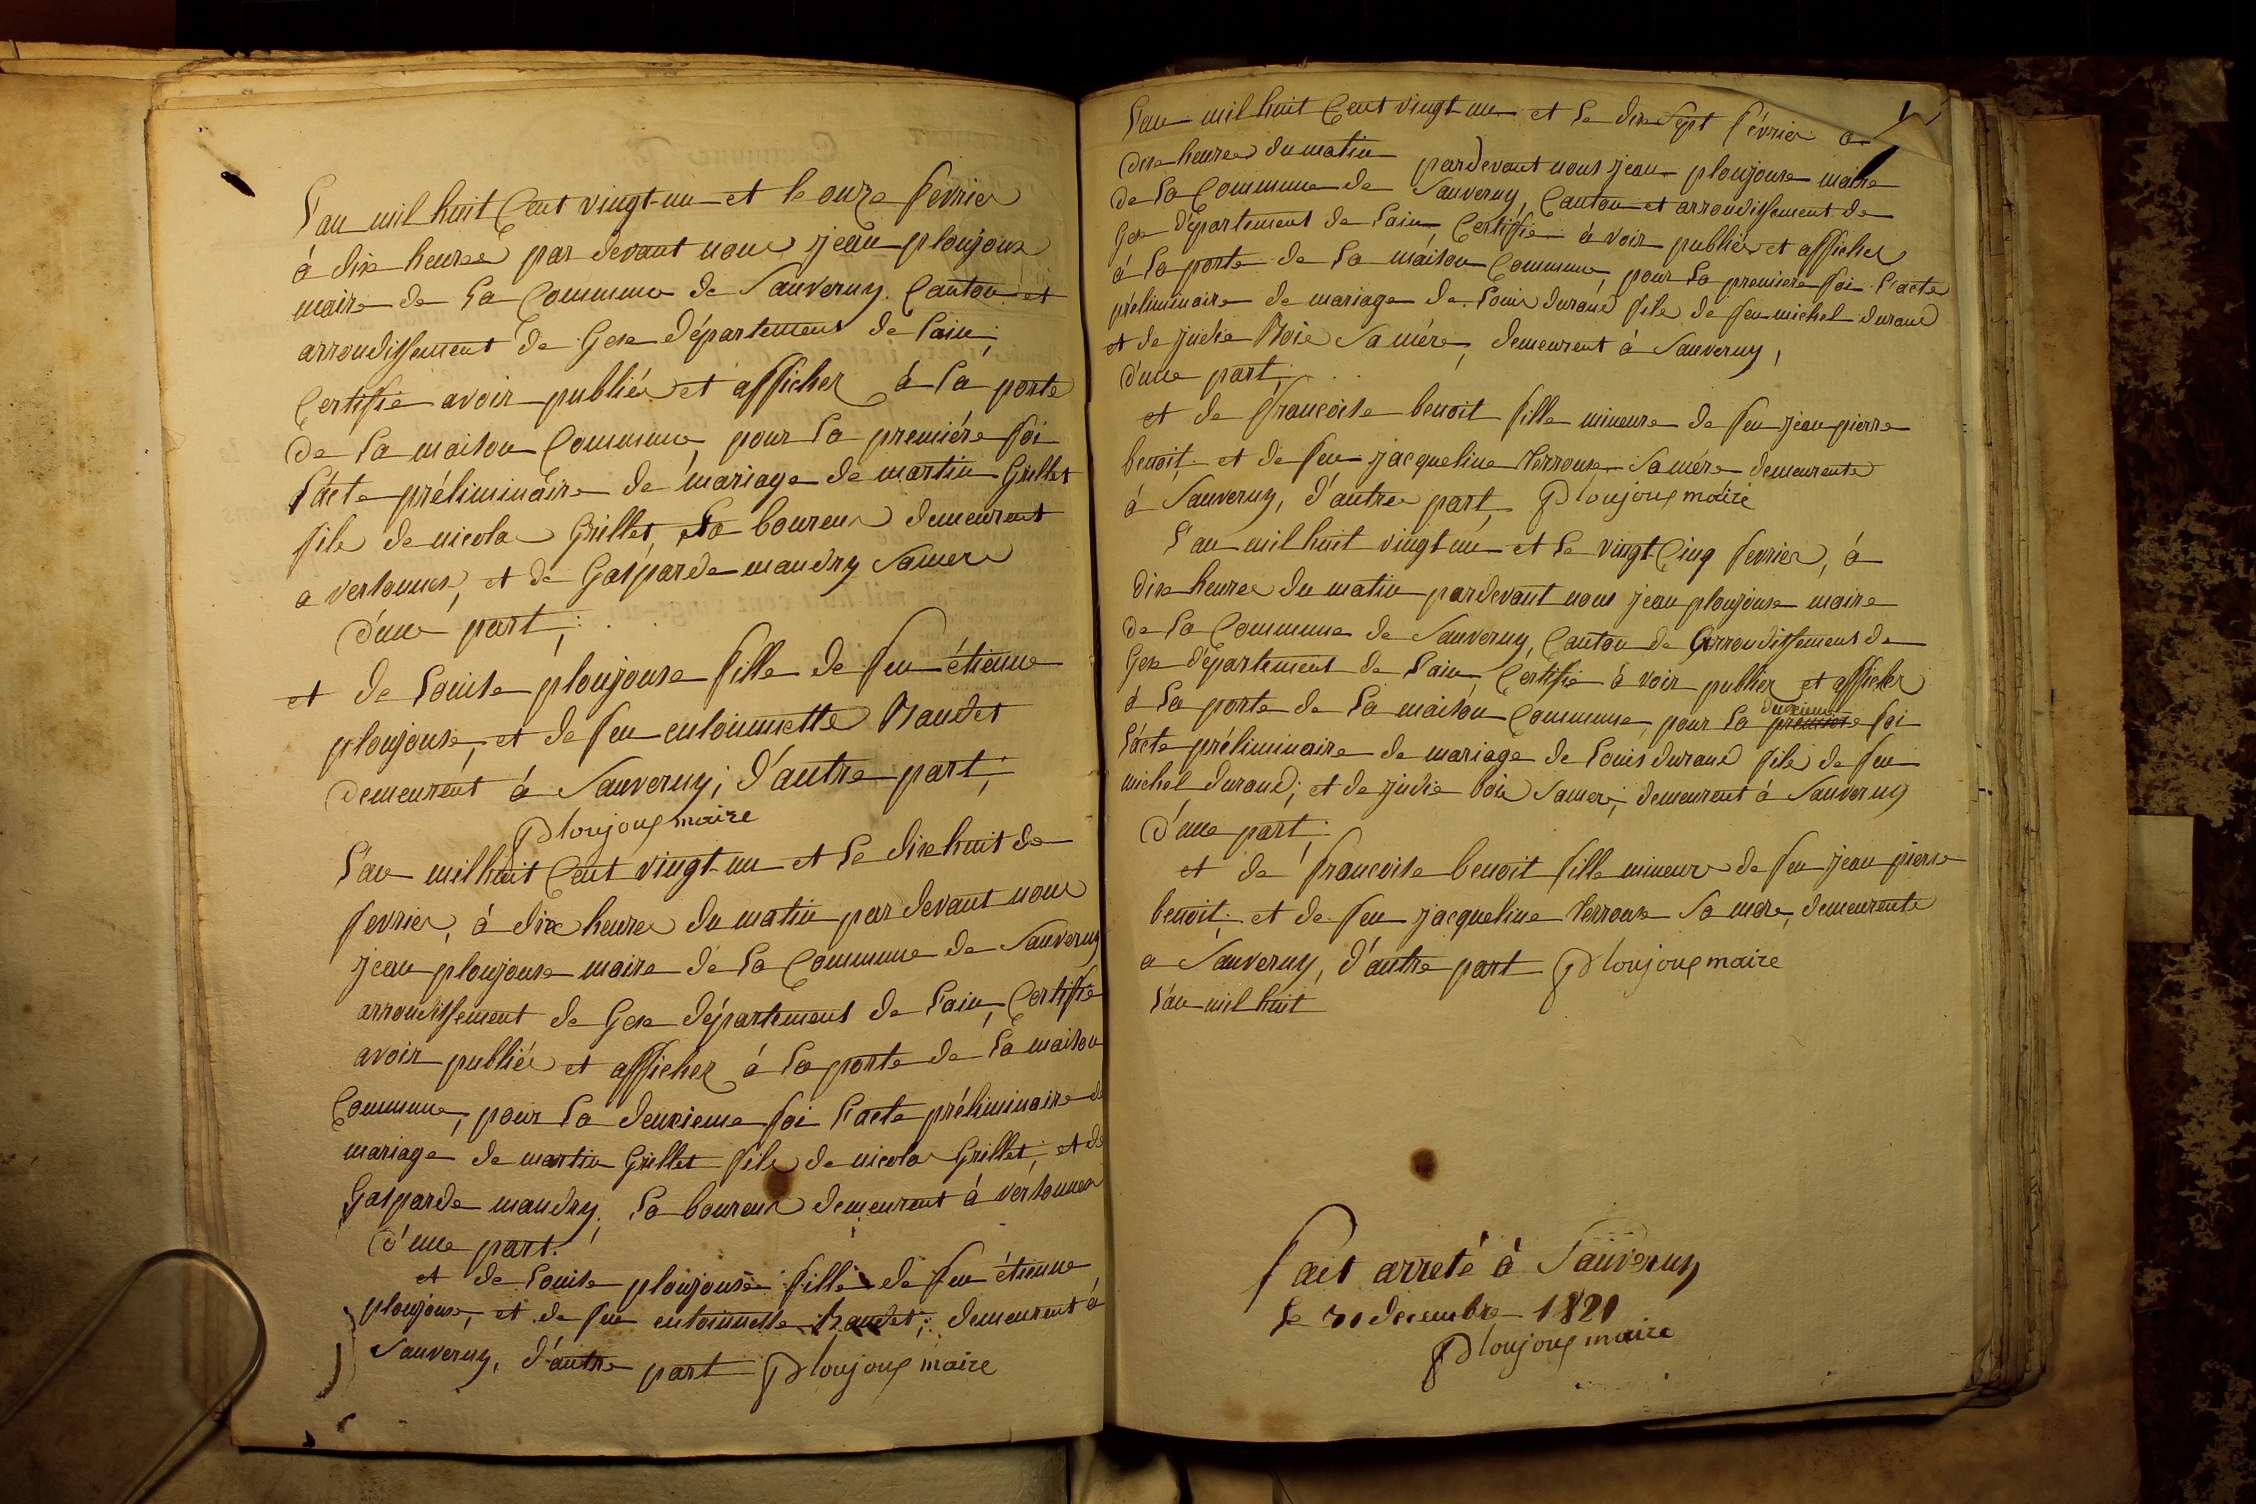 L'an mil huit Cent vingt-un et le onze fevrier
à dix heures par devant nous jean ploujoux
maire de la Commune de Sauverny. Canton et
arrondissement de Gex département de l'ain;
Certifie avoir publiér et afficher à la porte
de la maison Commune, pour la premiére foi
l'acte préliminaire de mariage de martin Grillet
fils de nicolas Grillet, laboureur demeurent
a versonnex, et de Gasparde maudry Samere
d'une part;
et de Louise ploujouse fille de feu étienne
ploujoux, et de feu entoinnette Baudet
demeurent à Sauverny; d'autre part;
Ploujoux maire
L'an mil huit Cent vingt-un et le dix huit de
fevrier, à dix heures du matin par devant nous
jean ploujoux maire de la Commune de Sauverny
arrondissement de Gex département de l'ain, Certifie
avoir publiér et afficher à la porte de la maison
Commune, pour la deuxieme foi l'acte préliminaire de
mariage de martin Grillet fils de nicolas Grillet, et de
Gasparde maudry, laboureur demeurent à versonnex
d'une part.
et de Louise ploujouse fille de feu étienne
ploujoux, et de feu entoinnette Baudet; demeurent à
Sauverny, d'autre part Ploujoux maire
L'an mil huit Cent vingt un et le dix Sept février a
dix heures du matin pardevant nous jean ploujoux maire
de la Commune de Sauverny, Canton et arrondissement de
Gex département de l'ain, Certifie à voir publiér et afficher
à la porte de la maison Commune, pour la premiere foi l'acte
préliminaire de mariage de Louis durand fils de feu michel durand
et de judie Bois Samére, demeurent à Sauverny,
d'une part;
et de francoise benoit fille mineure de feu jean pierre
benoit; et de feu jacqueline Verroux Samére demeurente
à Sauverny, d'autre part, Ploujoux maire
L'an mil huit vingt un et le vingt Cinq fevrier, à
dix heures du matin pardevant nous jean ploujoux maire
de la Commune de Sauverny, Canton de Arrondissement de
Gex département de l'ain, Certifie à voir publier et afficher
à la porte de la maison Commune, pour la premiere deuxieme foi
l'acte préliminaire de mariage de Louis durand fils de feu
michel durand; et de judie bois Samere; demeurent à Sauverny
d'une part;
et de francoise benoit fille mineure de feu jean pierre
benoit; et de feu jacqueline Verroux Samere, demeurente
a Sauverny, d'autre part Ploujoux maire
L'an mil huit
fait arreté à Sauverny
le 31 decembre 1821
Ploujoux maire